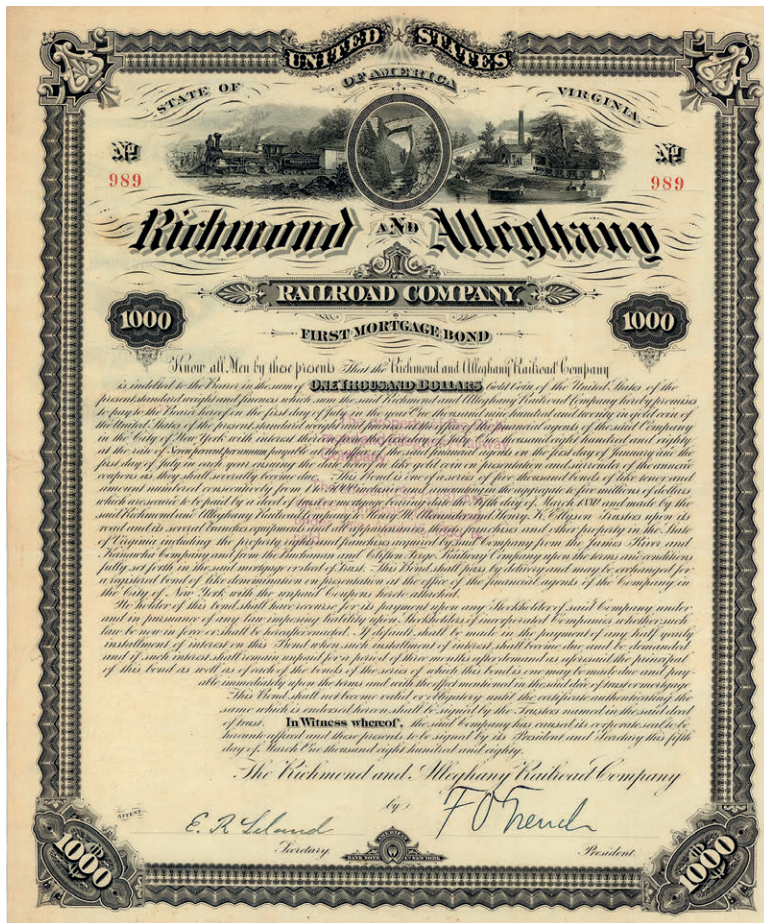 UNITED STATES
OF AMERICA
STATE OF VIRGINIA
No. No.
989 989
Richmond AND Alleghany
RAILROAD COMPANY.
1000 1000
FIRST MORTGAGE BOND
Know all Men by these presents That the Richmond and Alleghany Railroad Company
is indebted to the Bearer in the sum of ONE THOUSAND DOLLARS Gold Coin of the United States of the
present standard weight and fineness which sum the said Richmond and Alleghany Railroad Company hereby promises
to pay to the Bearer hereof on the first day of July in the year One thousand nine hundred and twenty in gold coin of
the United States of the present standard weight and fineness at the office of the financial agents of the said Company
in the City of New York with interest thereon from the first day of July One thousand eight hundred and eighty
at the rate of Seven per cent per annum payable at the office of the said financial agents on the first day of January and the
first day of July in each year ensuing the date hereof in like gold coin on presentation and surrender of the annexed
coupons as they shall severally become due. This Bond is one of a series of five thousand bonds of like tenor and
amount numbered consecutively from 1 to 5000 inclusive and amounting in the aggregate to five millions of dollars
which are secured to be paid by a deed of trust or mortgage bearing date the fifth day of March 1880 and made by the
said Richmond and Alleghany Railroad Company to Henry K. Ellyson Trustees upon its
road and its several branches equipments and apparatus things franchises and other property in the State
of Virginia including the property rights and franchises acquired by said Company from the James River and
Kanawha Company and from the Buchanan and Clifton Forge Railway Company upon the terms and conditions
fully set forth in the said mortgage or deed of Trust. This Bond shall pass by delivery and may be exchanged for
a registered bond of like denomination on presentation at the office of the financial agents of the Company in
the City of New York with the unpaid Coupons hereto attached.
No holder of this bond shall have recourse for its payment upon any Stockholder of said Company under
and in pursuance of any law imposing liability upon Stockholders of incorporated Companies whether such
law be now in force or shall be hereafter enacted. If default shall be made in the payment of any half yearly
installment of interest on this Bond when such installment of interest shall become due and be demanded
and if such interest shall remain unpaid for a period of three months after demand as aforesaid the principal
of this bond as well as of each of the bonds of the series of which this bond is one may be made due and pay-
able immediately upon the terms and with the effect mentioned in the said deed of trust or mortgage
This Bond shall not become valid or obligatory until the certificate authenticating the
same which is endorsed hereon shall be signed by the Trustees named in the said deed
of trust. In Witness whereof, the said Company has caused its corporate seal to be
hereunto affixed and these presents to be signed by its President and Secretary this fifth
day of March One thousand eight hundred and eighty.
The Richmond and Alleghany Railroad Company
ATTEST by
E. R. Leland F O French
Secretary. President.
AMERICAN
BANK NOTE CO. NEW YORK
1000 1000